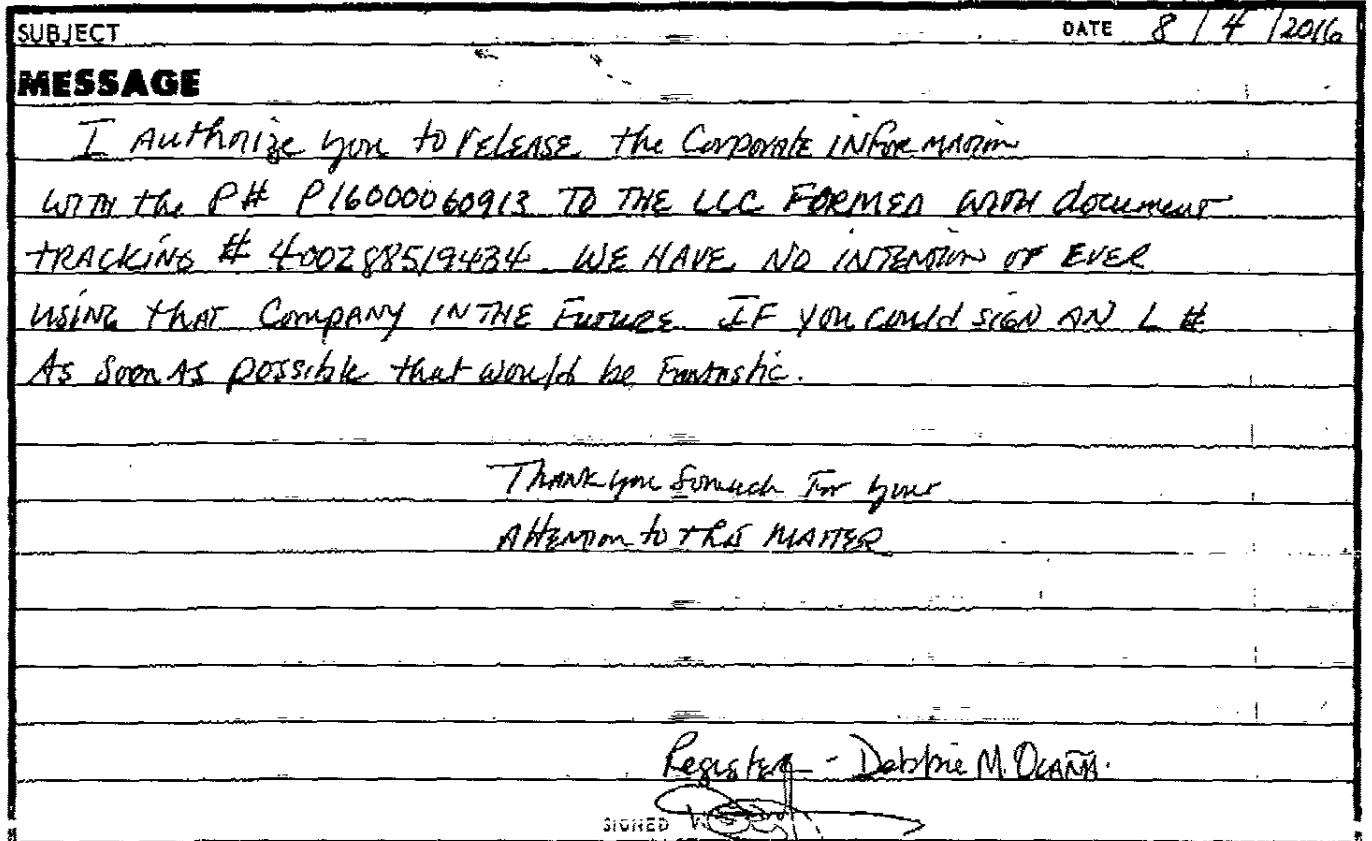 SUBJECT DATE 8 / 4 / 2016
MESSAGE
I Authorize you to release the Corporate information
with the P# P16000060913 TO THE LLC FORMED WITH document
TRACKING # 400288519434. WE HAVE NO INTENTION OF EVER
USING THAT COMPANY IN THE FUTURE. IF you could sign AN L #
As soon As possible that would be Fantastic.
Thank you so much For your
Attention to this MATTER
Register - Debbie M. Ocaña.
SIGNED